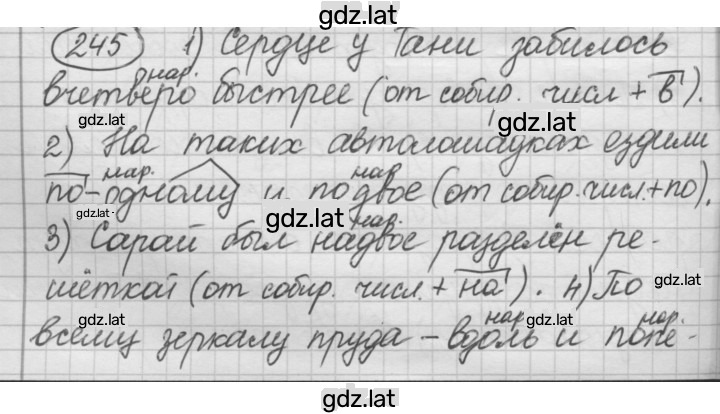 gdz.lat
245 1) Сердце у Тани забилось
нар.
вчетверо быстрее (от собир. числ + в).
gdz.lat gdz.lat
2) На таких автолошадках ездили
нар. нар
по-одному и по двое (от собир. числ.+по).
gdz.lat gdz.lat
нар.
3) Сарай был надвое разделён ре-
шёткой (от собир. числ. + на). 4) По
gdz.lat
gdz.lat нар. gdz.lat нар.
всему зеркалу пруда – вдоль и попе-
gdz.lat